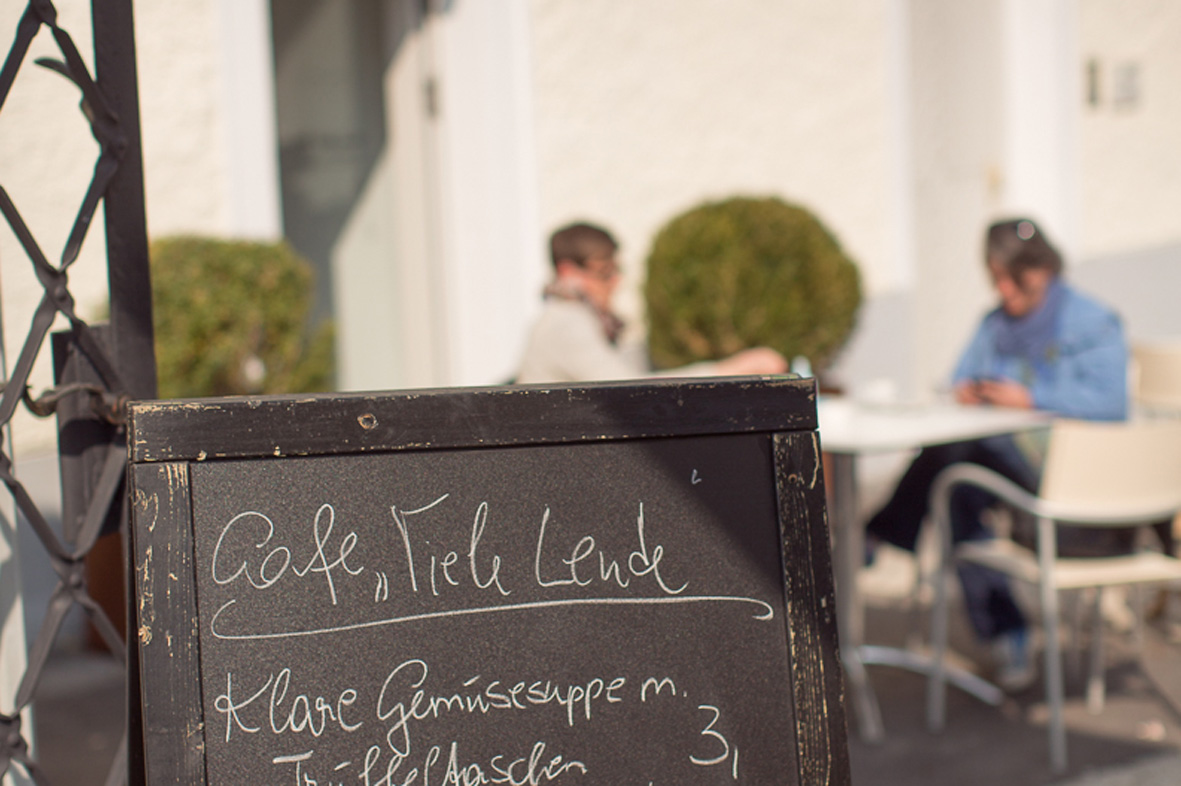 Cafe „Viele Lende
Klare Gemüsesuppe m.
Trüffeltaschen 3,